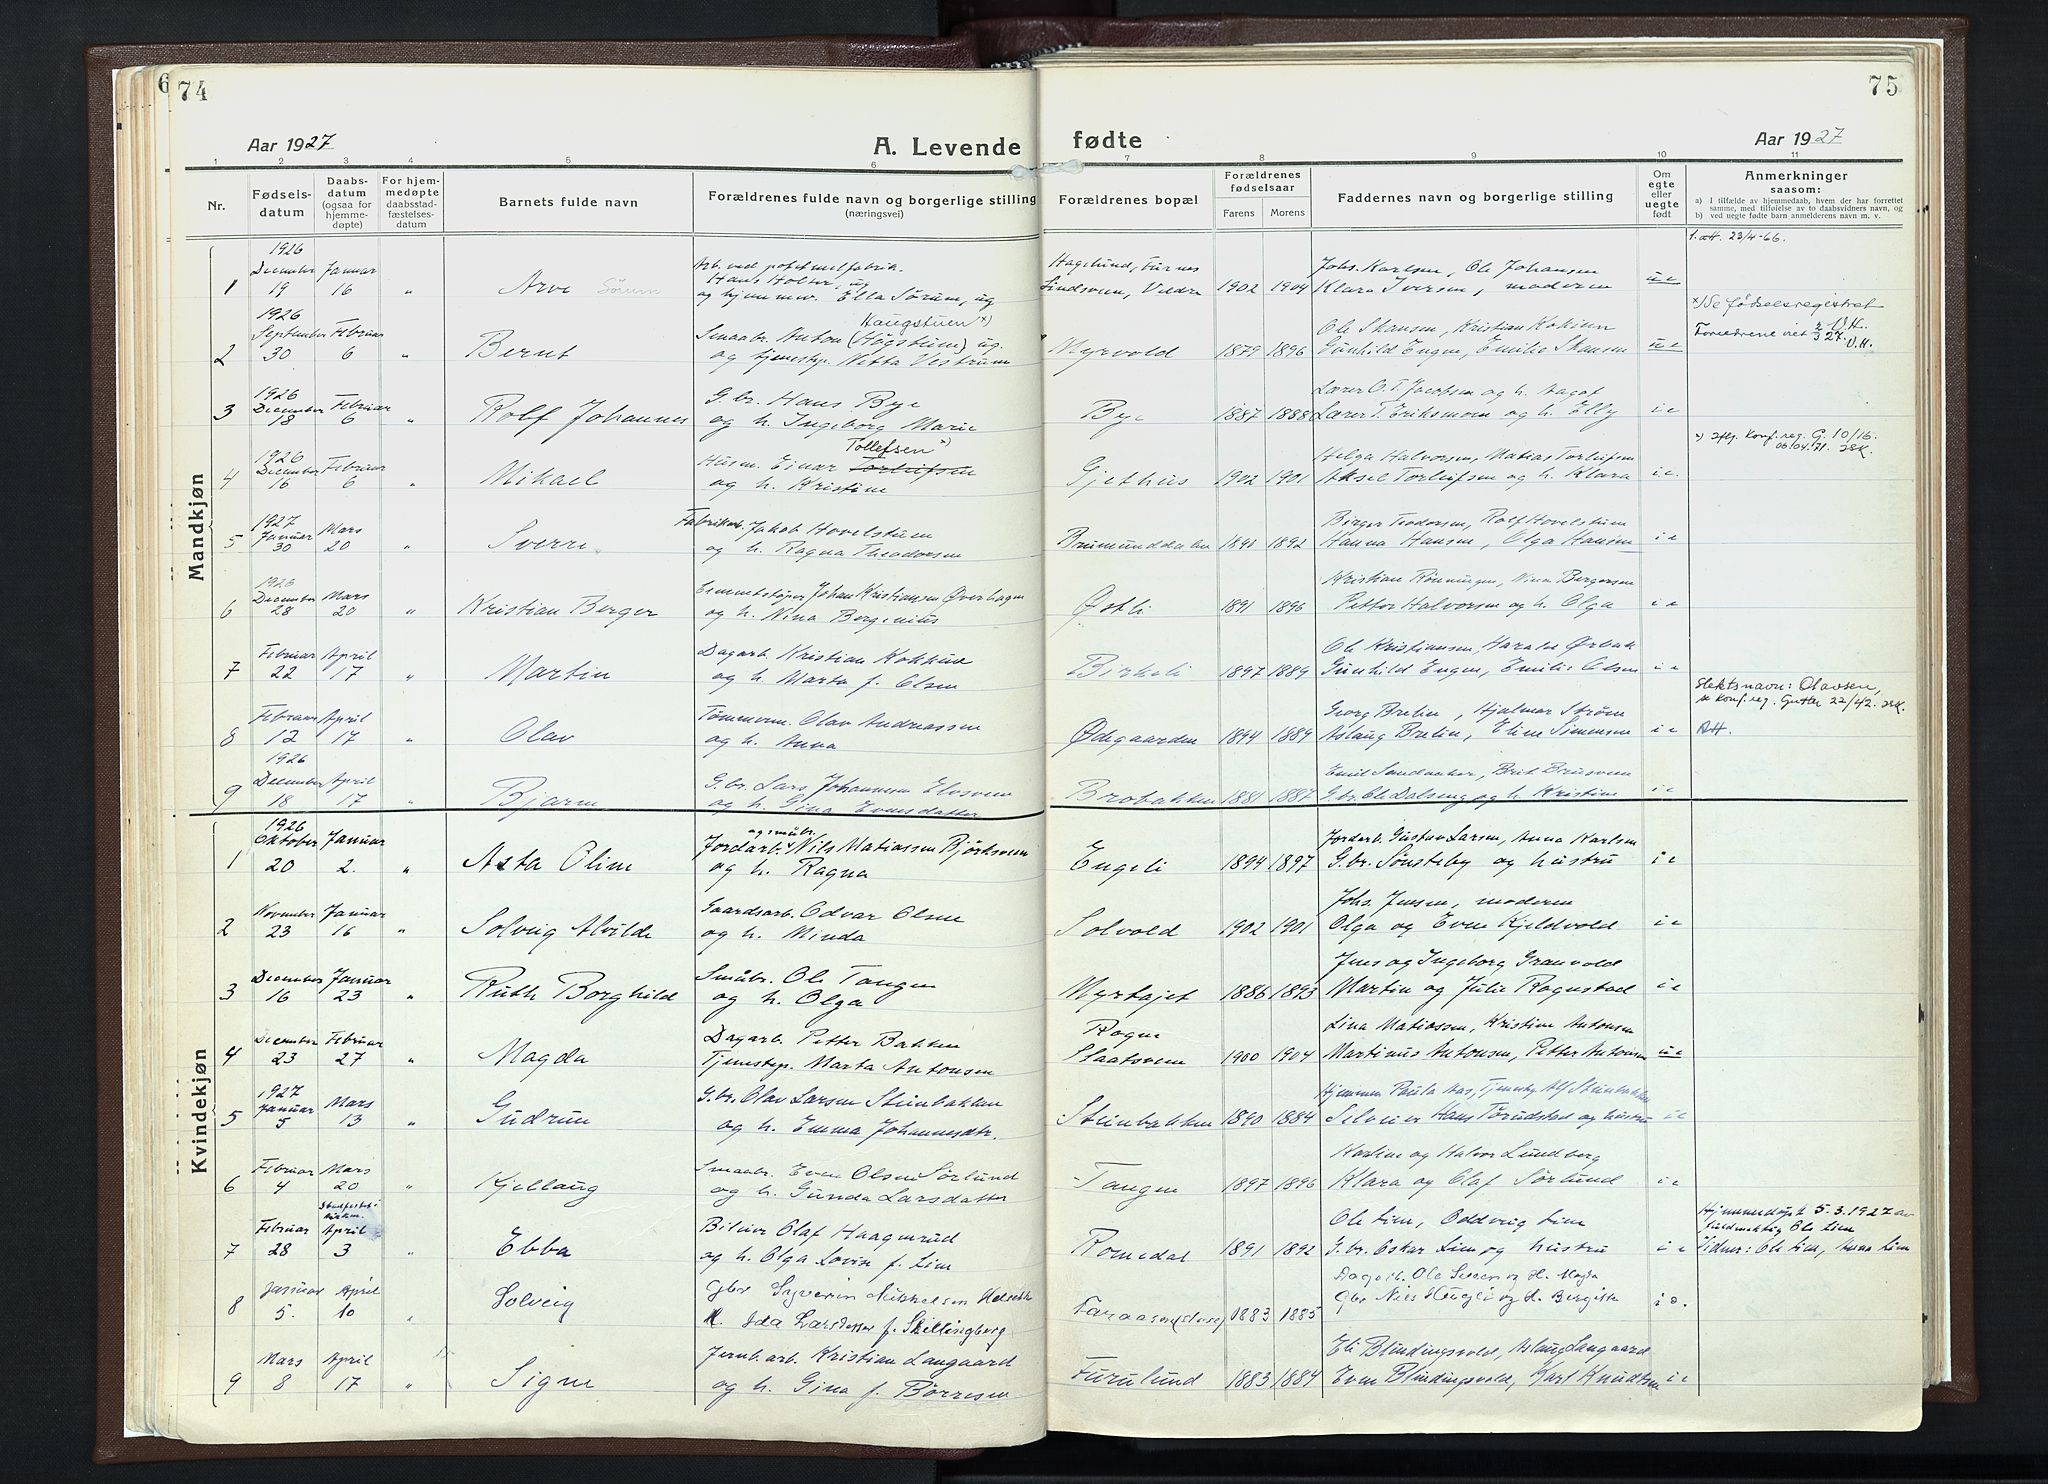 6
74
75
Aar 1927
A. Levende
fødte
Aar 1927
1 2 3 4 5 6 7 8 9 10 11
Nr.
Fødsels-
datum
Daabs-
datum
(ogsaa for
hjemme-
døpte)
For hjem-
medøpte
daabsstad-
fæstelses-
datum
Barnets fulde navn
Forældrenes fulde navn og borgerlige stilling
(næringsvei)
Forældrenes bopæl
Forældrenes
fødselsaar
Farens
Morens
Faddernes navn og borgerlige stilling
Om
egte
eller
uegte
født
Anmerkninger
saasom:
a) I tilfælde av hjemmedaab, hvem der har forrettet
samme, med tilføielse av to daabsvidners navn, og
b) ved uegte fødte barn anmelderens navn m. v.
Mandkjøn
1926 23/4-66.
December Januar Hans Holter, Hagelund, Furnes Johs. Karlsen, Ole Johansen
1 19 16 " Arve Sörum Ella Sörum, ug Lindsveen, Veldre 1902 1904 Klara Iversen, moderen ue
1926 Haugstuen x) x) Se fødselsregistret
September Februar Smaabr. Anton (Högstuen) ug. Ole Skansen, Kristian
2 30 6 " Bernt og tjenestep. Vestrum Myrvold 1879 1896 Gunhild Engen, Emilie Skansen ue
1926
December Februar G.br. Hans Bye Lærer O. T. Jacobsen og h. Aagot
3 18 6 " Rolf Johannes og h. Ingeborg Marie Bye 1887 1888 Lærer T. og h. Elly ie
1926 Tollefsen x) x) iflg. Konf.reg. G. 10/16.
December Februar Husm. Einar Torleifsen Helga Halvorsen, Matias Torleifsen 06.04.71.
4 16 6 " Mikael og h. Kristine Gjethus 1902 1901 Aksel Torleifsen og h. Klara ie.
1927
Januar Mars Fabrikarb. Jakob Hovelstuen Birger Teodorsen, Rolf Hovelstuen
5 30 20 " Sverre og h. Ragna Theodorsen Brumunddalen 1892 Hanna Hansen, Olga Hansen ie
1926
December Mars Johan Kristiansen Øverhagen Kristian Rönningen, Nina Bergersen
6 28 20 " Kristian Berger og h. Nina Østli 1891 1896 Petter Halvorsen og h. Olga ie
Februar April Dagarb. Kristian Ole Kristiansen, Harald Ørbak
7 22 17 " Martin og h. Marta f. Olsen Birkeli 1897 1889 Gunhild Engen, Emilie Olsen ie
Slektsnavn: Olavsen,
Februar April Tömmerm. Olav Andreassen Georg Brelin, Hjalmar Ström se konf.reg. Gutter 22/42.
8 12 17 " Olav og h. Anna Ødegaarden 1894 1889 Aslaug Brelin, Eline Simensen ie
1926
December April G.br. Lars Johannesen Elvsveen Emil Sandaaker, Brit Brusveen
9 18 17 " Bjarne og h. Gina Evensdatter Brobakken 1881 1887 G.br. Ole Dalseng og h. Kristine ie
Kvindekjøn
1926 og småbr.
Oktober Januar Jordarb. Nils Matiassen Björksveen Jordarb. Gustav Larsen, Anna Karlsen
1 20 2. " Asta Oline og h. Ragna Engeli 1894 1897 G.br. Sönsteby og hustru ie
November Januar Gaardsarb. Odvar Olsen Johs. Jensen, moderen
2 23 16 " Solveig Alvilde og h. Minda Solvold 1902 1901 Olga og Even Kjeldvold ie
December Januar Småbr. Ole Tangen Jens og Ingeborg Granvold
3 16 23 " Ruth Borghild og h. Olga Myrhajet 1886 1893 Martin og Julie Rognstad ie
December Februar Dagarb. Petter Bakken Rogne Lina Matiassen, Kristine Antonsen
4 23 27 " Magda Tjenestep. Marta Antonsen Staatsveen 1900 1904 Martinus Antonsen, Petter Antonsen ue
1927
Januar Mars G.br. Olav Larsen Steinbakken Hjemmev. Paula Aas, Tjenestg. Alf Steinbakken
5 5 13 " Gudrun og h. Emma Johannesdtr. Steinbakken 1890 1884 Hans Torudstad og hustru ie
Februar Mars Smaabr. Even Olsen Sörlund Martine og Halvor Lundberg
6 4 20 " Kjellaug og h. Gunda Larsdatter Tangen 1897 1896 Klara og Olaf Sörlund ie
Stadfestet i
Februar April Bileier Olaf Haagenrud Ole Lien, Oddveig Lien Hjemmedøpt 5.3.1927 av
7 28 3 " Ebba og h. Olga Lovise f. Lien Romedal 1891 1892 G.br. Oskar Lien og hustru ie Vidner: Ole Lien, Anna Lien
Januar April Gbr Syverin Mikkelsen Dagarb. Ole og H. Magda
8 5. 10 " Solveig H. Ida Larsdatter f. Skillingberg 1883 1885 Gbr Nils og H. Bergitte i e.
Mars April Jernb.arb. Kristian Langaard Eli Blindingsvold, Aslaug Langaard
9 8 17 " Signe og h. Gina f. Börresen Furulund 1883 1884 Even Blindingsvold, Karl Knudtsen ie